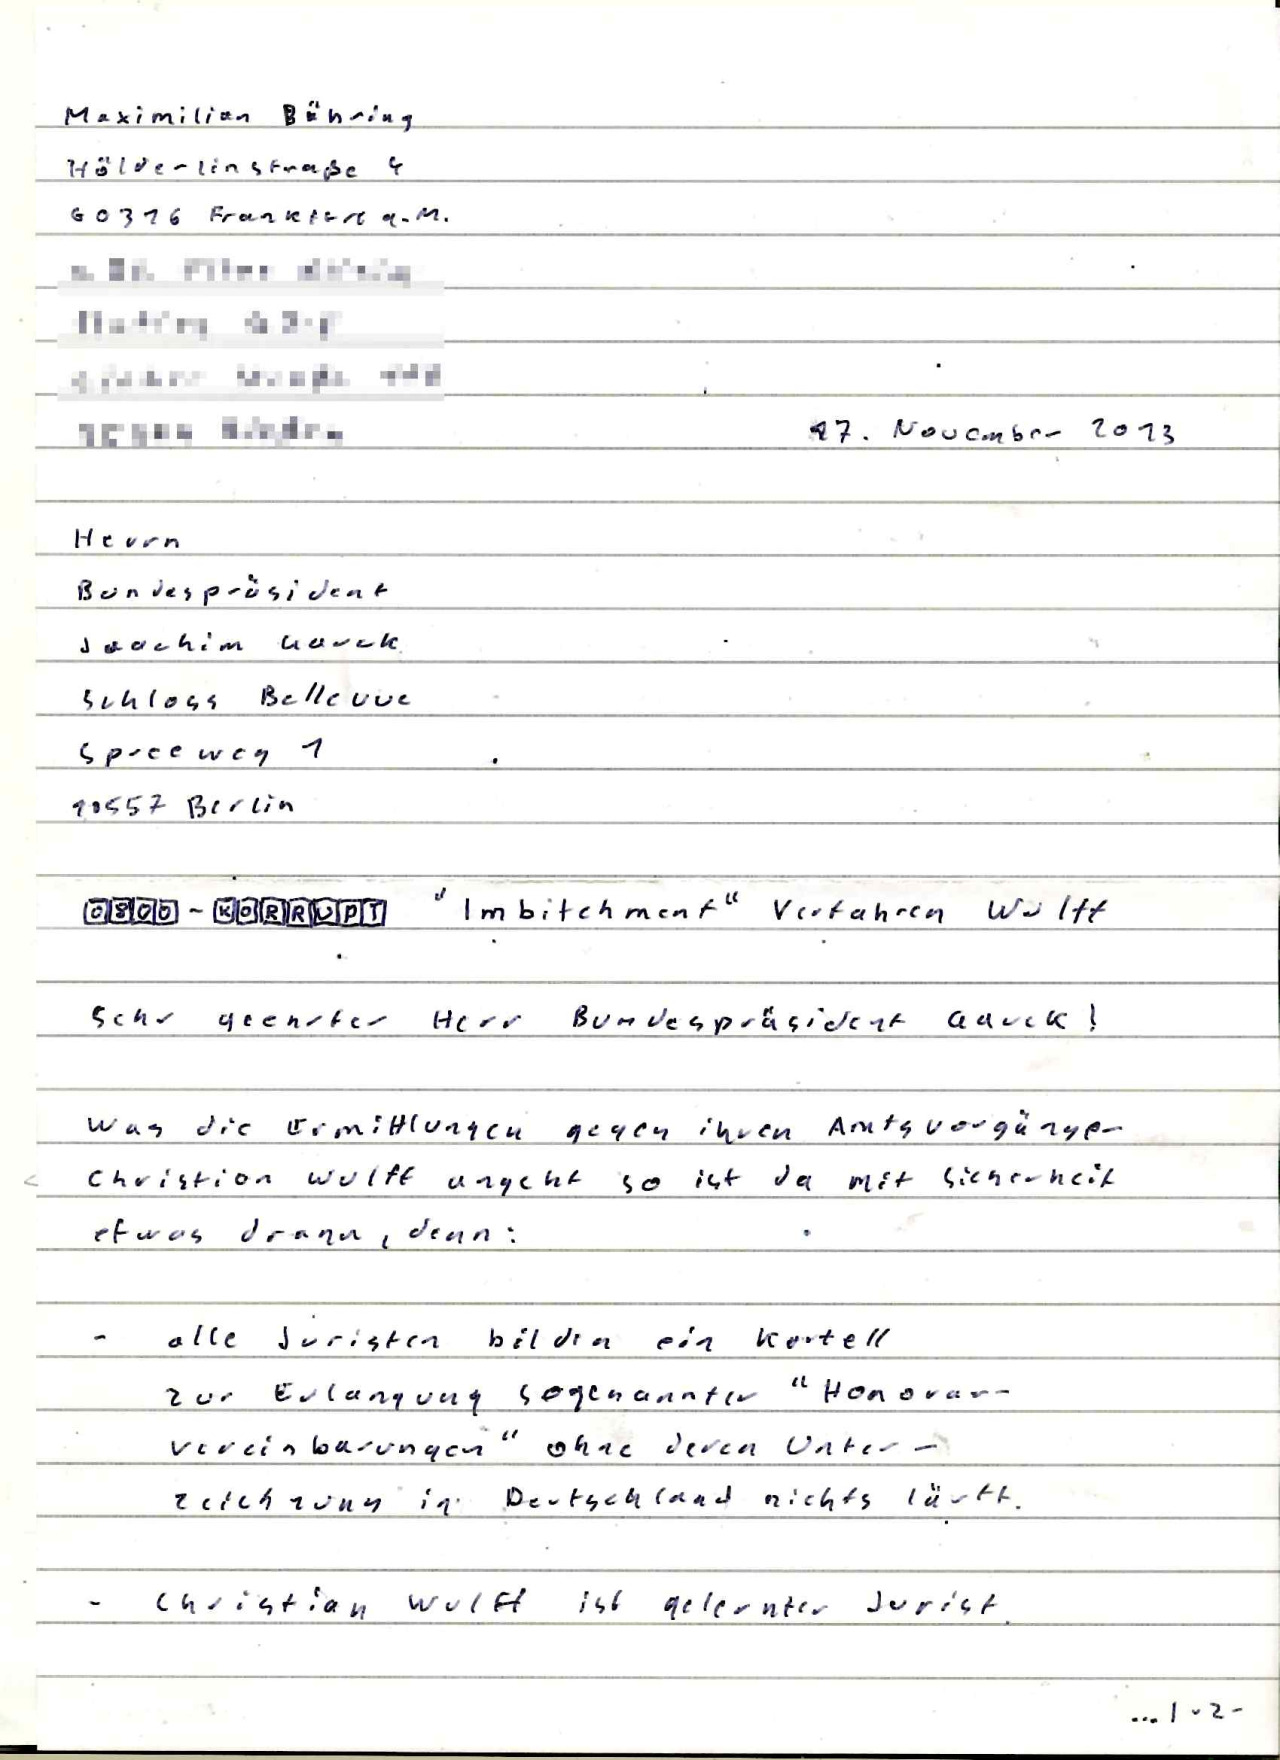 Maximilian Bähring
Hölderlinstraße 4
60316 Frankfurt a.M.
17. November 2013
Herrn
Bundespräsident
Joachim Gauck
Schloss Bellevue
Spreeweg 1
10557 Berlin
0800-KORRUPT "Imbitchment" Verfahren Wulff
Sehr geehrter Herr Bundespräsident Gauck!
Was die Ermittlungen gegen ihren Amtsvorgänger
Christion Wulff angeht so ist da mit Sicherheit
etwas drann, denn:
- alle Juristen bilden ein Kartell
zur Erlangung sogenannter "Honorar-
vereinbarungen" ohne deren Unter-
zeichnung in Deutschland nichts läuft.
- Christian Wulff ist gelernter Jurist.
...1-2-